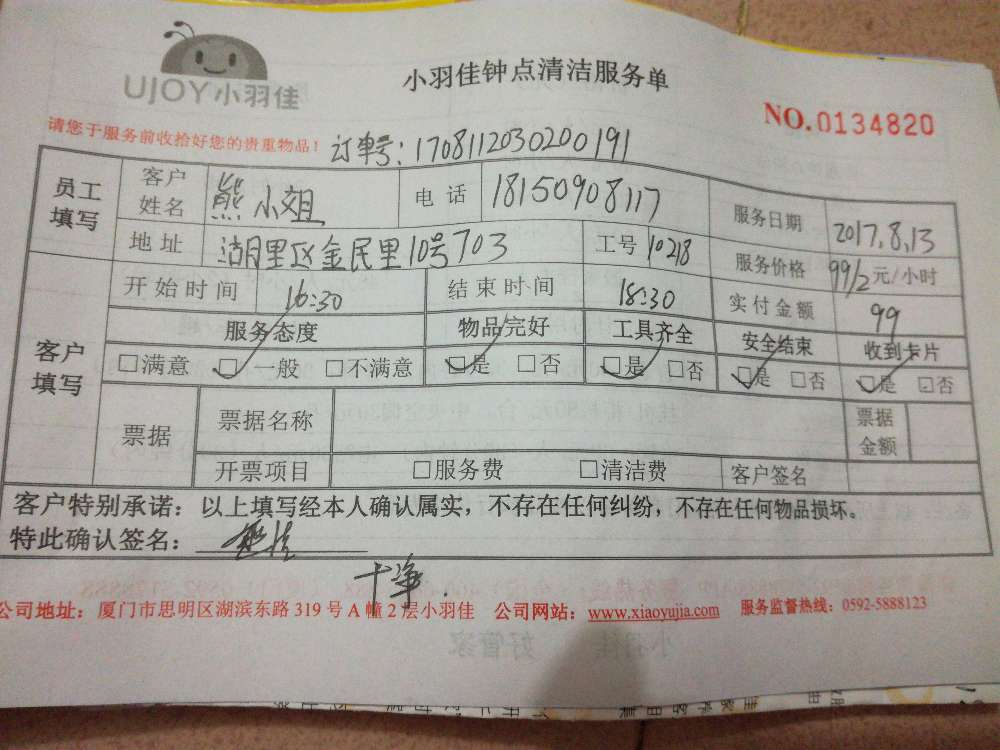 UJOY小羽佳
小羽佳钟点清洁服务单
NO.0134820
请您于服务前收拾好您的贵重物品！ 订单号：1708112030200191
员工填写 客户姓名 熊小姐 电话 18150908117 服务日期 2017.8.13
地址 湖里区金民里10号703 工号 10218 服务价格 99/2元/小时
客户填写 开始时间 16:30 结束时间 18:30 实付金额 99
服务态度 物品完好 工具齐全 安全结束 收到卡片
□满意 □一般 □不满意 □是 □否 □是 □否 □是 □否 □是 □否
票据 票据名称 票据金额
开票项目 □服务费 □清洁费 客户签名
客户特别承诺：以上填写经本人确认属实，不存在任何纠纷，不存在任何物品损坏。
特此确认签名：
干净
公司地址：厦门市思明区湖滨东路319号A幢2层小羽佳 公司网站：www.xiaoyujia.com 服务监督热线：0592-5888123